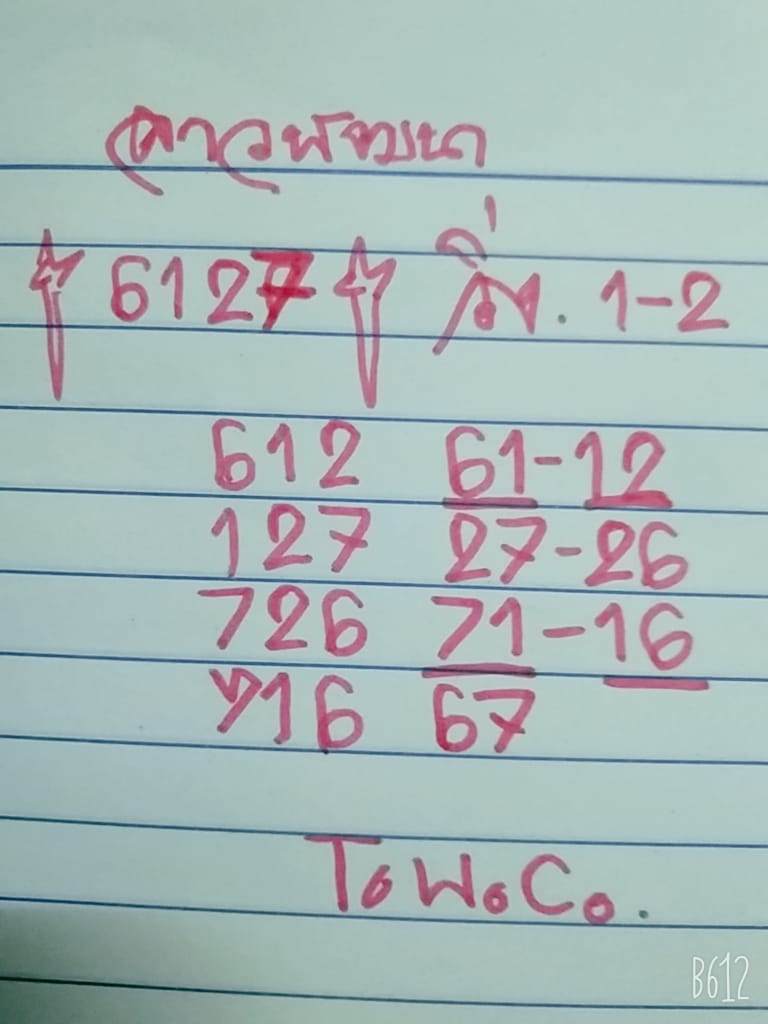 ดาวพัฒนา
6127 วิ่ง. 1-2
612 61-12
127 27-26
726 71-16
716 67
T.W.C.
B612